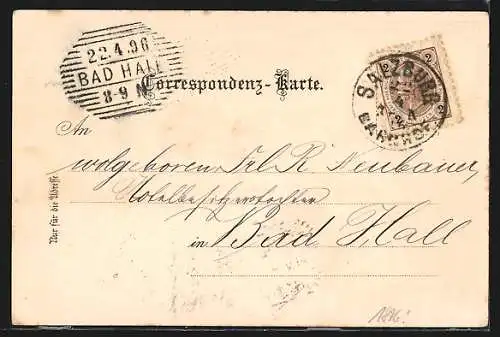 22.4.96
BAD HALL
8-9 N
Correspondenz-Karte.
2 2
2 2
SALZBURG
BAHNHOF
An
wolgeboren Frl R Neubauer,
Hotelbesitzerstochter
in Bad Hall
Nur für die Adresse
1896!